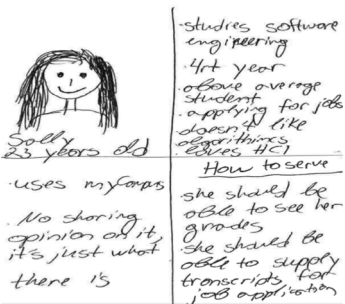 Sally
23 years old
· studies software
engineering
· 4rt year
· above average
student
· applying for jobs
· doesn't like
algorithims
· loves HCI
· uses myCampus
· No sharing
opinion on it,
it's just what
there is
How to serve
· she should be
able to see her
grades
· she should be
able to supply
transcripts for
job application